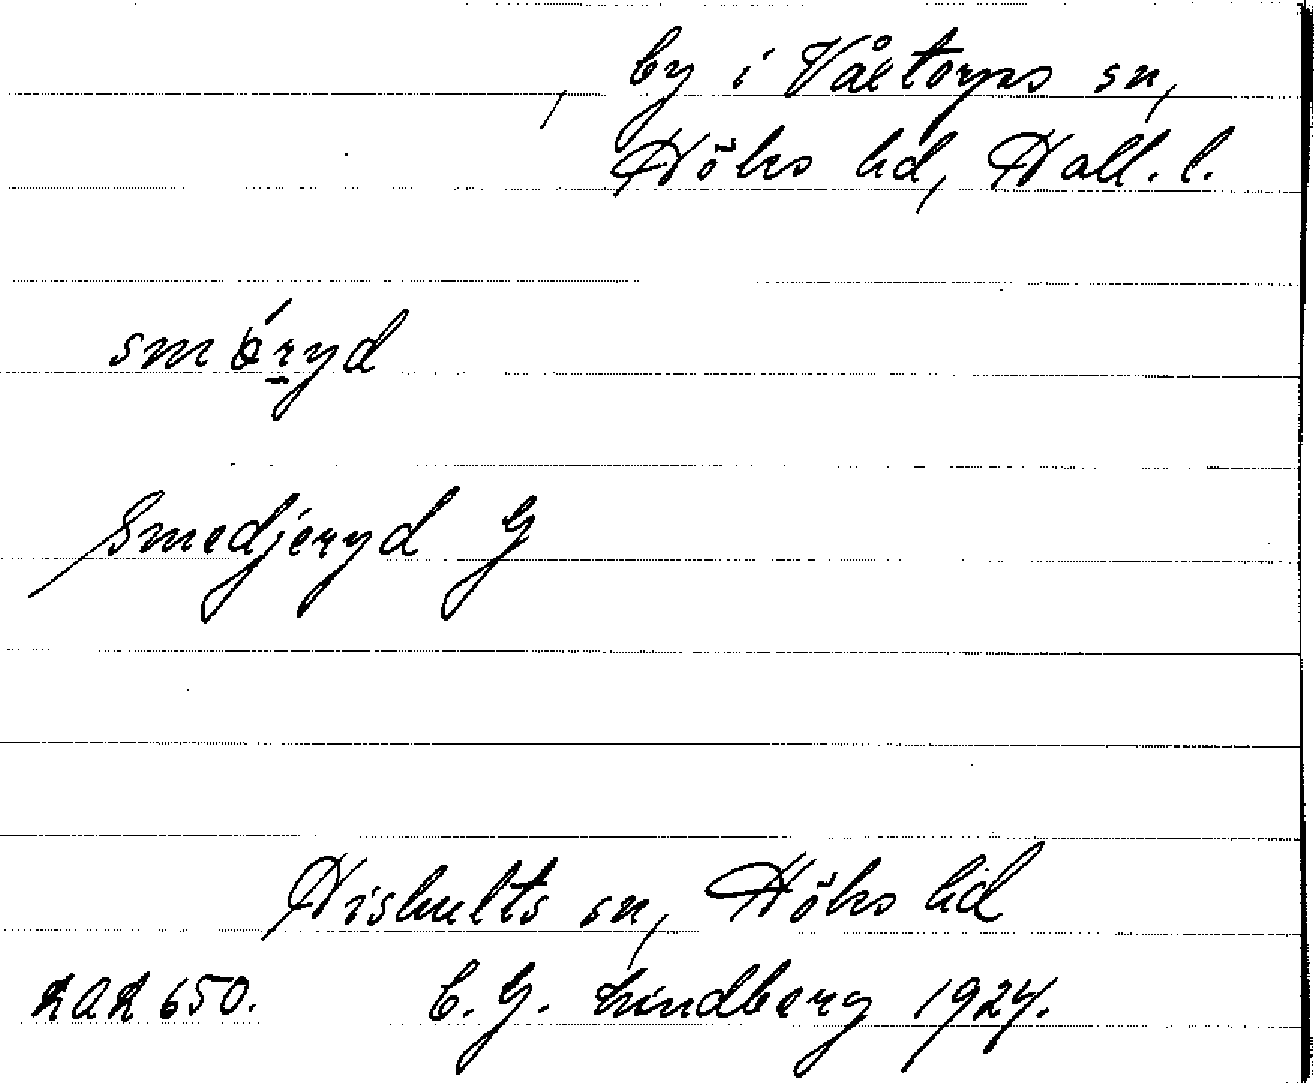 , by i Våxtorps sn,
Höks hd, Hall. l.
smǿryd
Smedjeryd G
Hishults sn, Höks hd
LAL 650. C. G. Lindberg 1924.